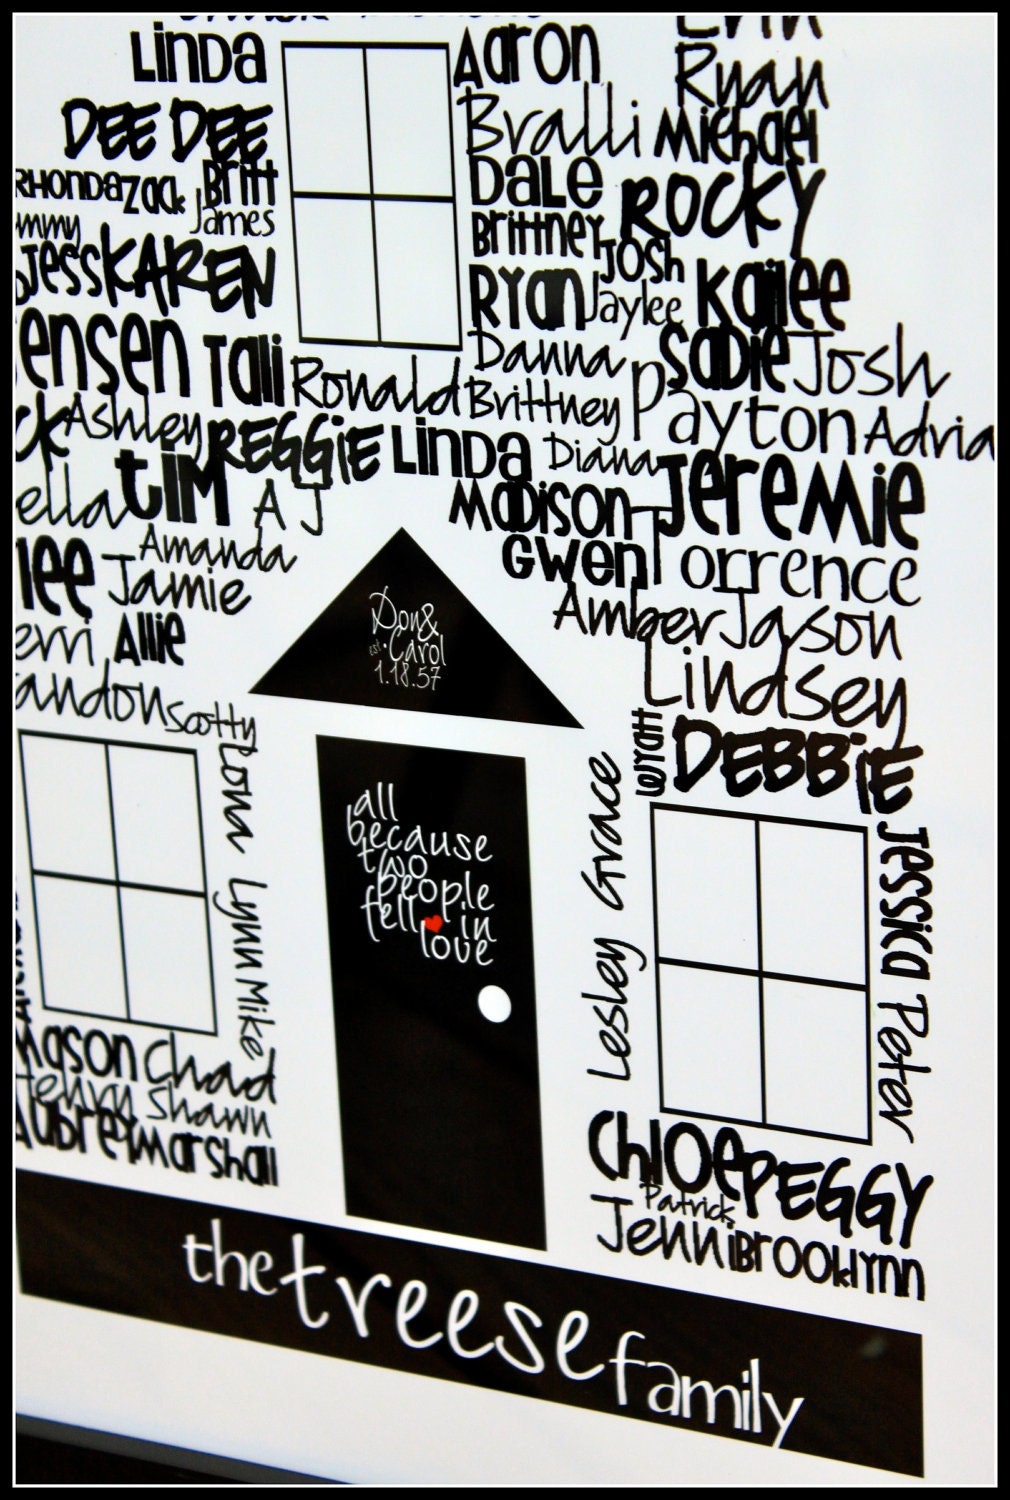 Linda
Aaron
Erin
Ryan
DEE DEE
Bralli
Michael
RHONDA
Zack
Britt
Dale
ROCKY
James
Brittney
Josh
Jess
KAREN
Ryan
Jaylee
Kailee
Tali
Ronald
Danna
Sadie
Josh
Brittney
Payton
Ashley
REGGiE
Linda
Diana
Adria
tiM
A J
Madison
Jeremie
Amanda
Gwen
Torrence
Jamie
Amber
Jason
Allie
Don&
est. Carol
1.18.57
Lindsey
Scotty
Wyatt
DEBBiE
Rona Lynn
Mike
all
because
two
people
fell in
love
Lesley Grace
Jessica
Peter
Mason
Chad
Henry
Shawn
Aubrey
Marshall
Chloe
PEGGY
Patrick
Jenni
Brooklynn
the treese family